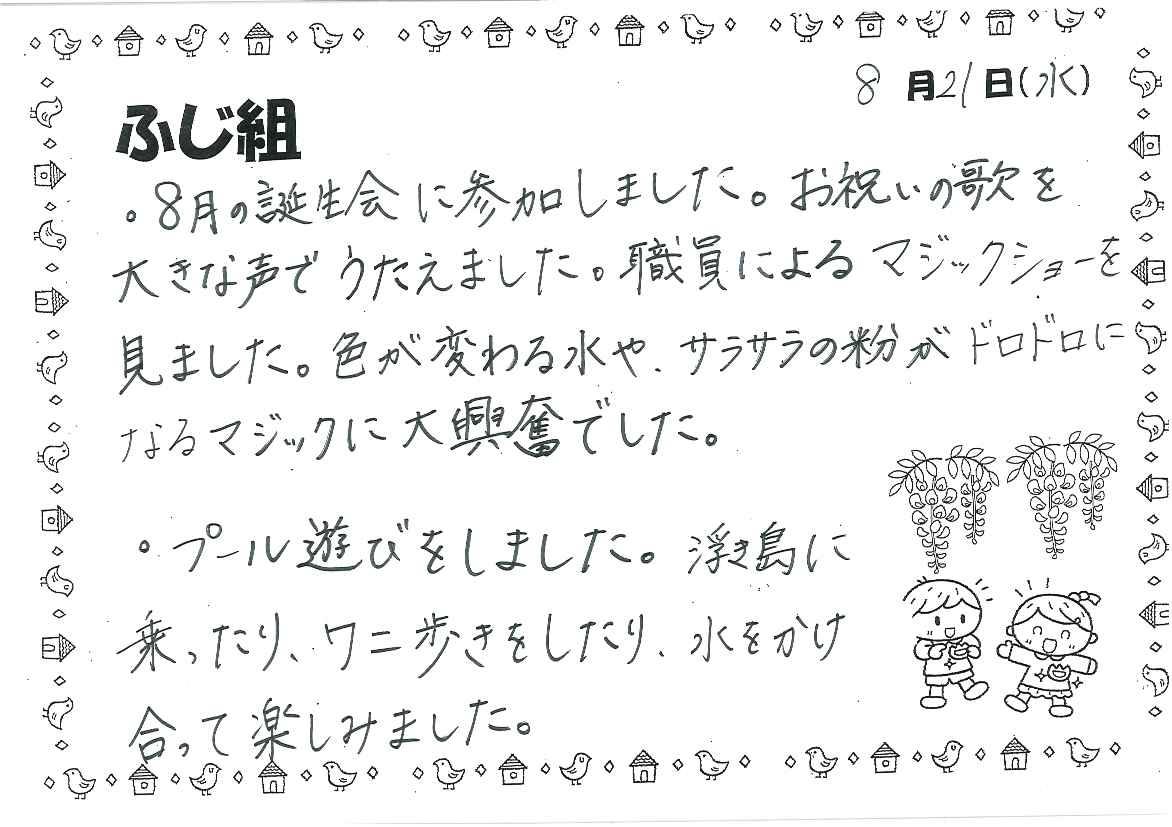 8月21日(水)
ふじ組
。8月の誕生会に参加しました。お祝いの歌を
大きな声でうたえました。職員によるマジックショーを
見ました。色が変わる水や、サラサラの粉がドロドロに
なるマジックに大興奮でした。
。プール遊びをしました。浮き島に
乗ったり、ワニ歩きをしたり、水をかけ
合って楽しみました。